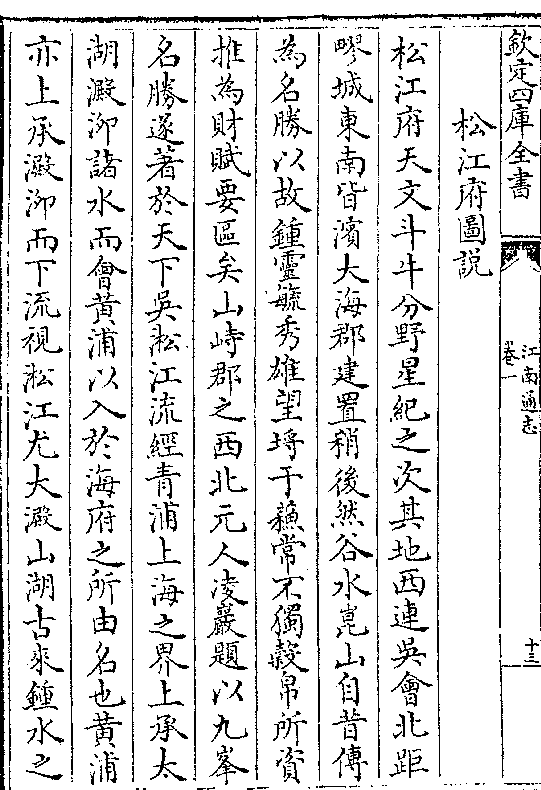 欽定四庫全書
江南通志
卷一
十三
松江府圖說
松江府天文斗牛分野星紀之次其地西連吳會北距
嘐城東南皆濱大海郡建置稍後然谷水崑山自昔傳
為名勝以故鍾靈毓秀雄望埒于蘇常不獨榖帛所資
推為財賦要區矣山峙郡之西北元人凌巖題以九峯
名勝遂著於天下吳淞江流經青浦上海之界上承太
湖澱泖諸水而會黃浦以入於海府之所由名也黃浦
亦上承澱泖而下流視淞江尤大澱山湖古來鍾水之